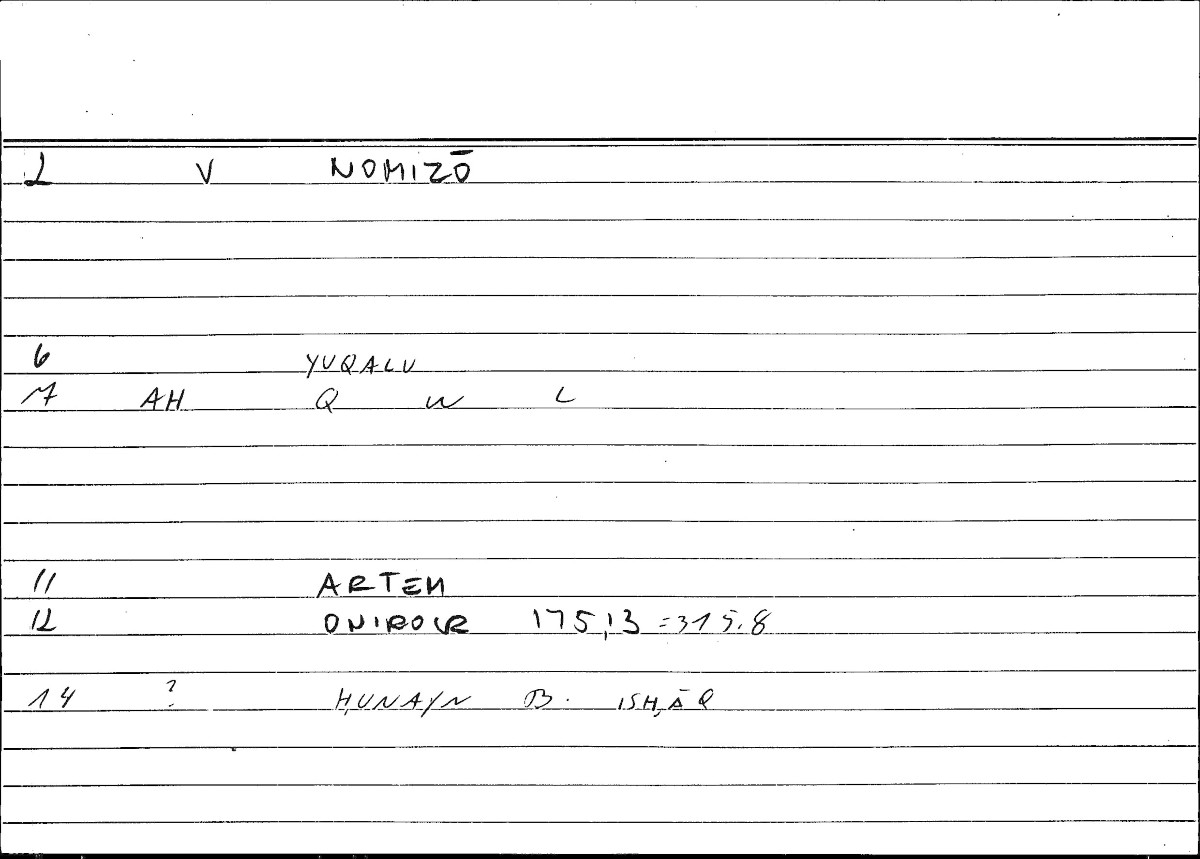 2 V NOMIZŌ
6 YUQALU
7 AH Q W L
11 ARTEM
12 ONIROCR 175,13 =315.8
14 ? ḤUNAYN B. ISḤĀQ